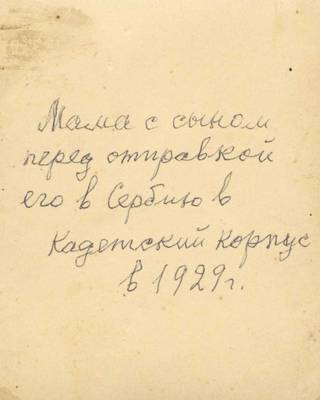 Мама с сыном
перед отправкой
его в Сербию в
Кадетский Корпус
в 1929г.